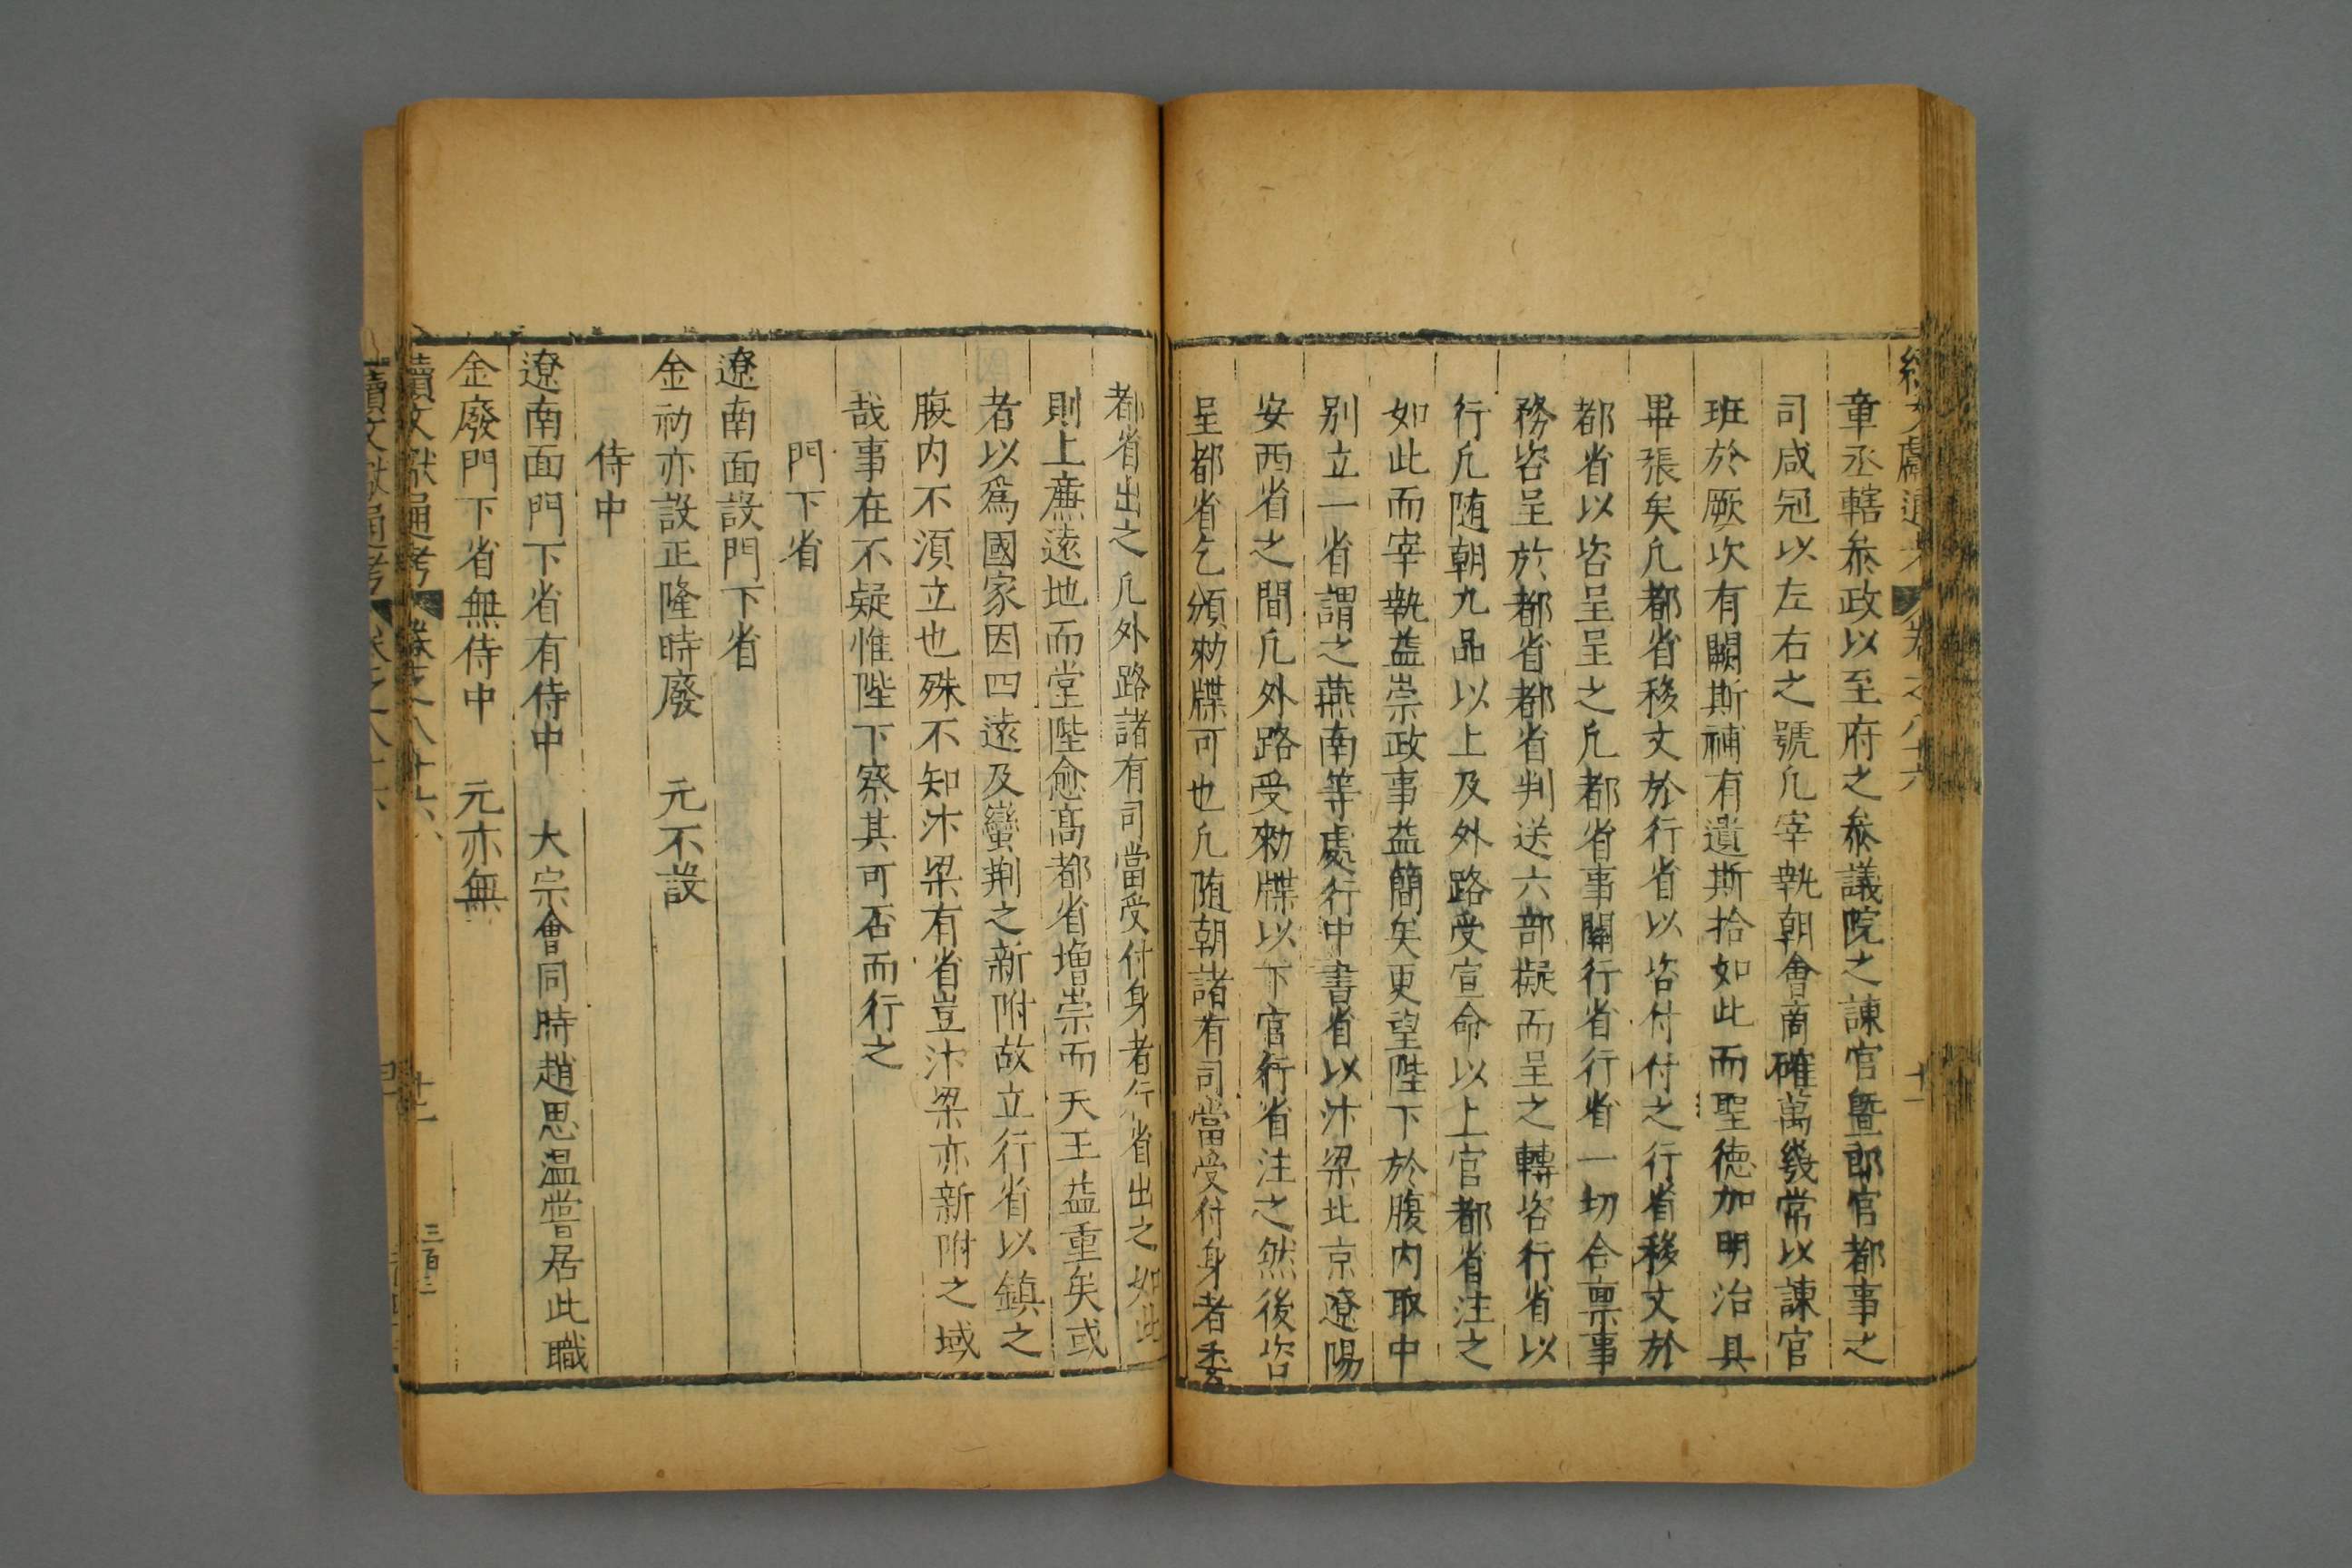 續文獻通考 卷之八十六 十一
章丞轄叅政以至府之叅議院之諫官曁郎官都事之
司咸冠以左右之號凢宰執朝會商確萬幾常以諫官
班於厥次有闕斯補有遺斯拾如此而聖德加明治具
畢張矣凢都省移文於行省以咨付付之行省移文於
都省以咨呈呈之凢都省事關行省行省一切合禀事
務咨呈於都省都省判送六部擬而呈之轉咨行省以
行凢随朝九品以上及外路受宣命以上官都省注之
如此而宰執益崇政事益簡矣更望陛下於腹内取中
别立一省謂之燕南等處行中書省以汴梁北京遼陽
安西省之間凢外路受勑牒以下官行省注之然後咨
呈都省乞頒勑牒可也凢随朝諸有司當受付身者委
都省出之凢外路諸有司當受付身者行省出之如此
則上廉遠地而堂陛愈髙都省增崇而天王益重矣或
者以爲國家因四遠及蠻荆之新附故立行省以鎮之
腹内不湏立也殊不知汴梁有省豈汴梁亦新附之域
哉事在不疑惟陛下察其可否而行之
門下省
遼南面設門下省
金初亦設正隆時廢 元不設
侍中
遼南面門下省有侍中 大宗會同時趙思温嘗居此職
金廢門下省無侍中 元亦無
續文獻通考 卷之八十六 十二 三百三
續文獻通考 卷之八十六